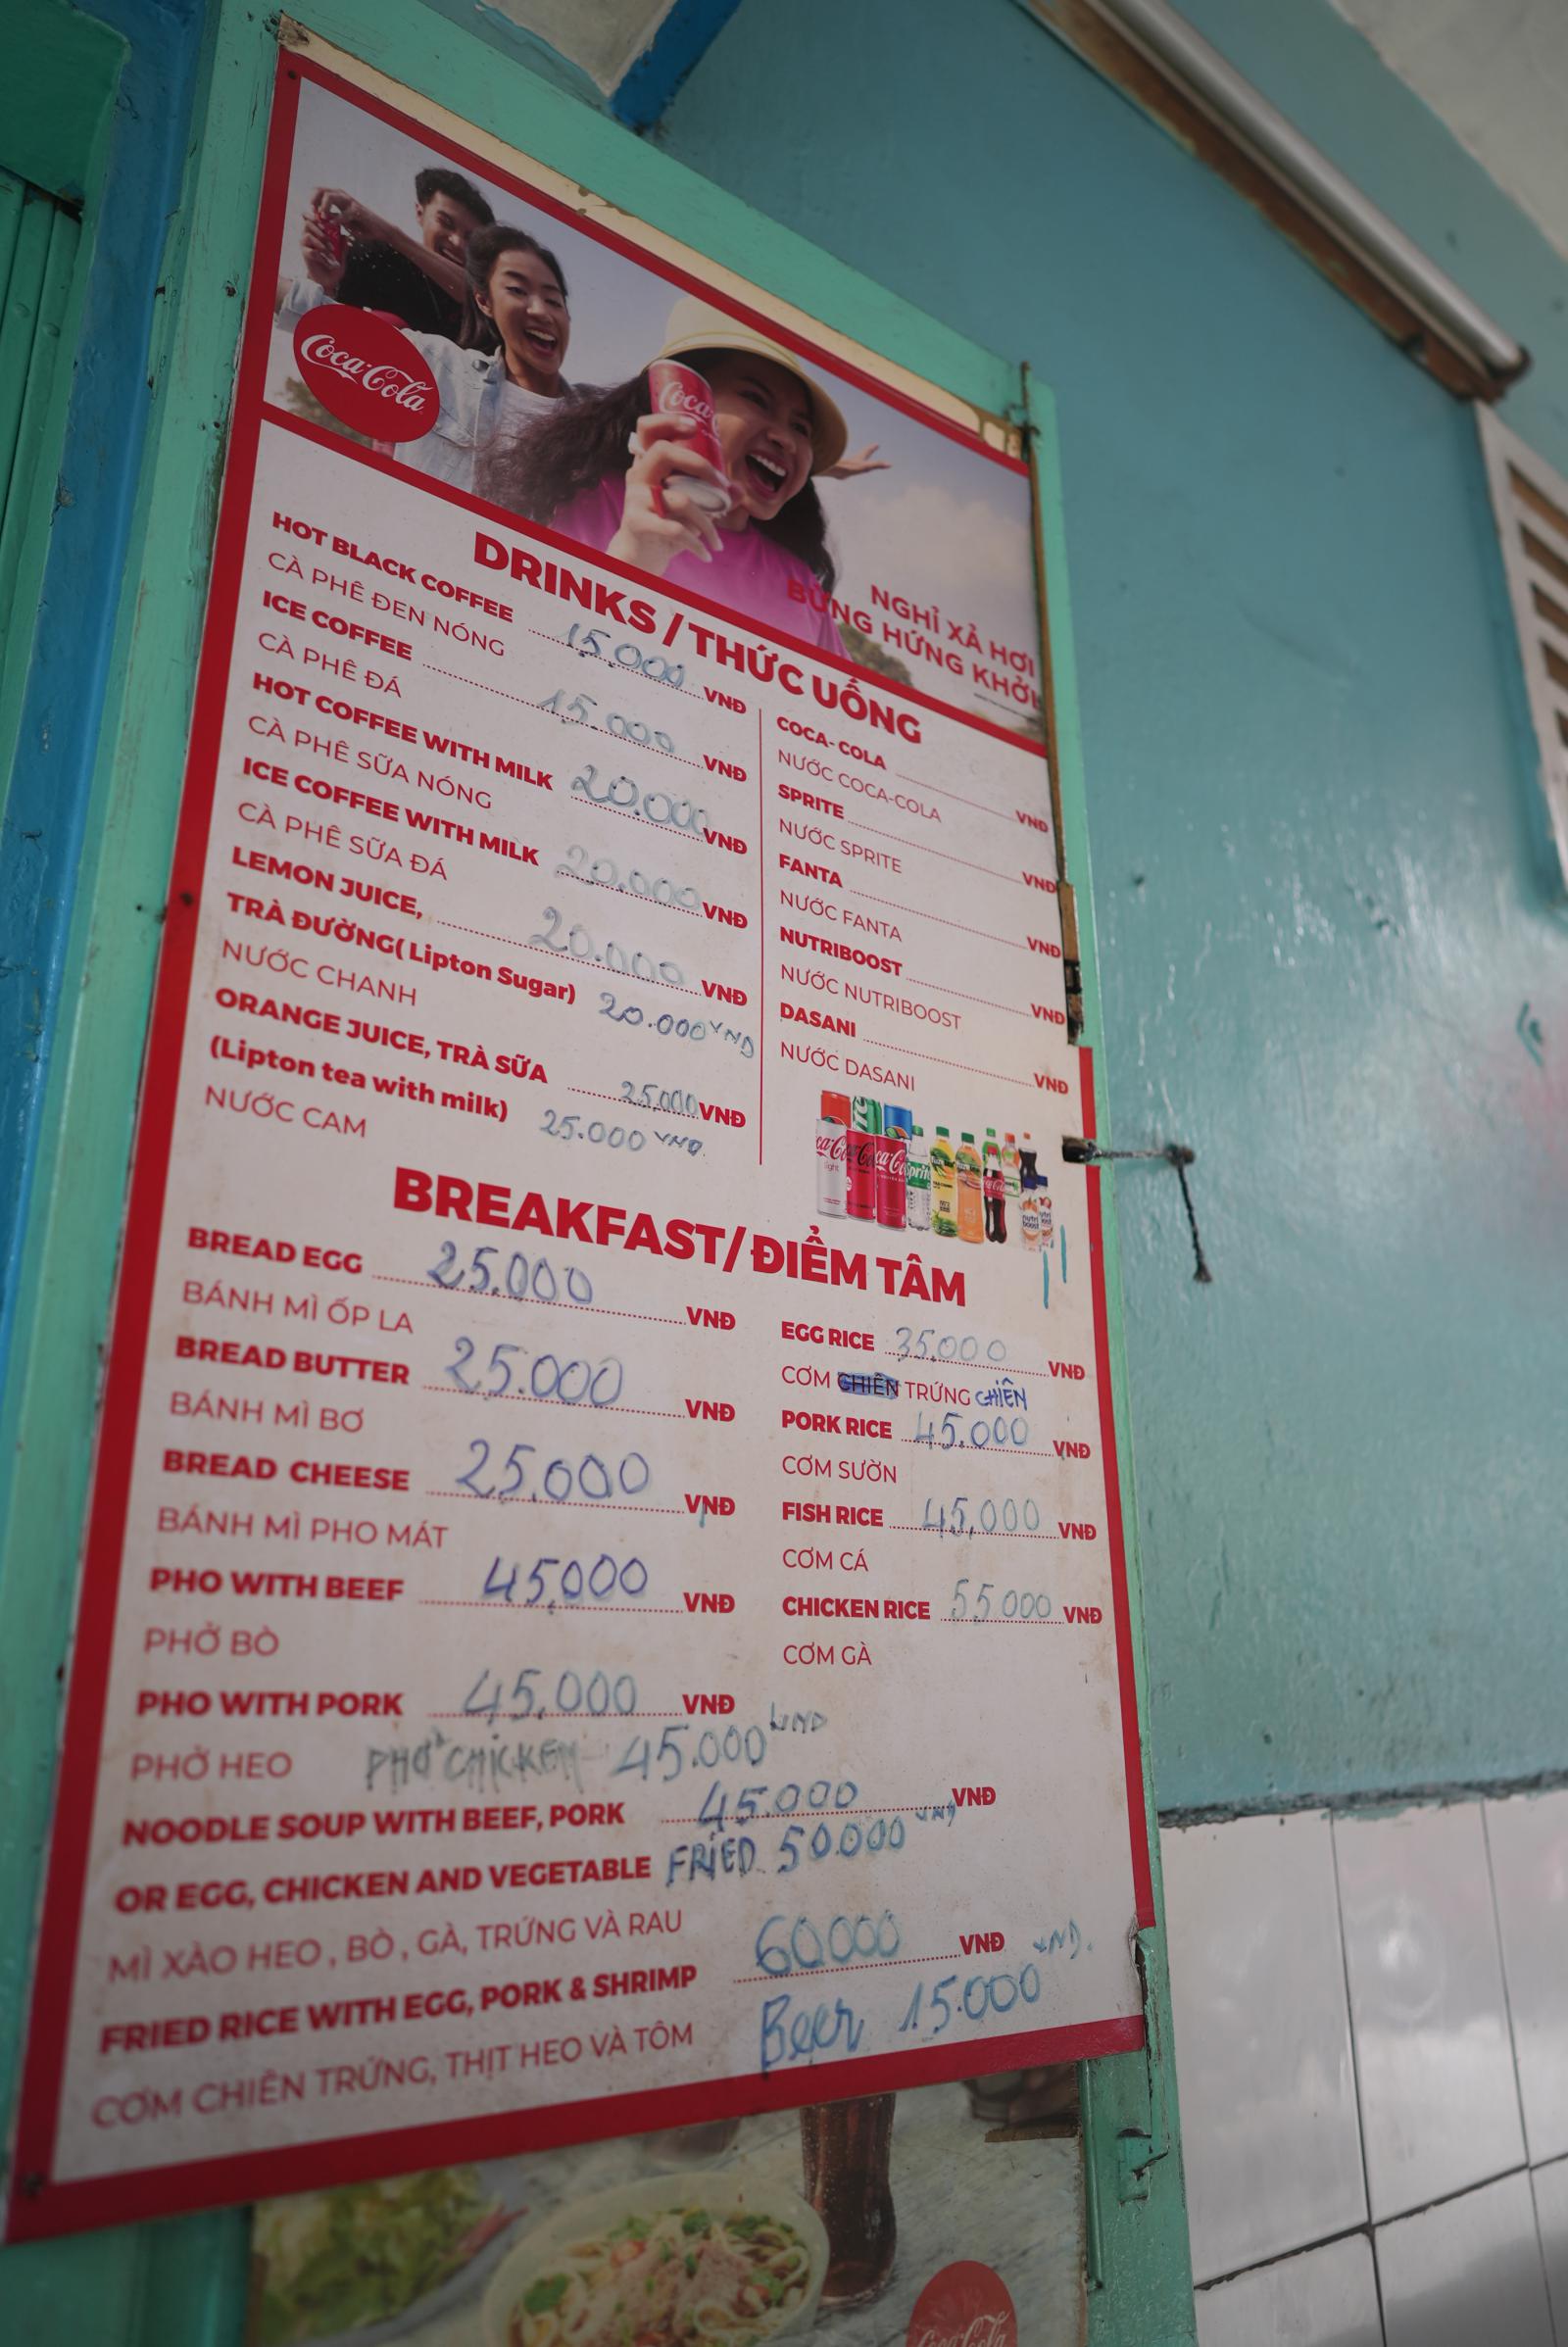 Coca-Cola
Coca
NGHỈ XẢ HƠI
BỪNG HỨNG KHỞI
DRINKS / THỨC UỐNG
HOT BLACK COFFEE 15.000 VNĐ
CÀ PHÊ ĐEN NÓNG
ICE COFFEE 15.000 VNĐ
CÀ PHÊ ĐÁ
HOT COFFEE WITH MILK 20.000 VNĐ
CÀ PHÊ SỮA NÓNG
ICE COFFEE WITH MILK 20.000 VNĐ
CÀ PHÊ SỮA ĐÁ
LEMON JUICE, 20.000 VNĐ
TRÀ ĐƯỜNG( Lipton Sugar) 20.000 VND
NƯỚC CHANH
ORANGE JUICE, TRÀ SỮA 25.000 VNĐ
(Lipton tea with milk) 25.000 VNĐ
NƯỚC CAM
COCA- COLA VNĐ
NƯỚC COCA-COLA
SPRITE VNĐ
NƯỚC SPRITE
FANTA VNĐ
NƯỚC FANTA
NUTRIBOOST VNĐ
NƯỚC NUTRIBOOST
DASANI VNĐ
NƯỚC DASANI
BREAKFAST/ ĐIỂM TÂM
BREAD EGG 25.000 VNĐ
BÁNH MÌ ỐP LA
BREAD BUTTER 25.000 VNĐ
BÁNH MÌ BƠ
BREAD CHEESE 25.000 VNĐ
BÁNH MÌ PHO MÁT
PHO WITH BEEF 45.000 VNĐ
PHỞ BÒ
PHO WITH PORK 45.000 VNĐ
PHỞ HEO PHỞ CHICKEN 45.000 VND
EGG RICE 35.000 VNĐ
CƠM CHIÊN TRỨNG CHIÊN
PORK RICE 45.000 VNĐ
CƠM SƯỜN
FISH RICE 45.000 VNĐ
CƠM CÁ
CHICKEN RICE 55.000 VNĐ
CƠM GÀ
NOODLE SOUP WITH BEEF, PORK 45.000 VNĐ
OR EGG, CHICKEN AND VEGETABLE FRIED 50.000 VND
MÌ XÀO HEO , BÒ , GÀ, TRỨNG VÀ RAU
FRIED RICE WITH EGG, PORK & SHRIMP 60000 VNĐ
CƠM CHIÊN TRỨNG, THỊT HEO VÀ TÔM Beer 15.000 VND.
Coca-Cola